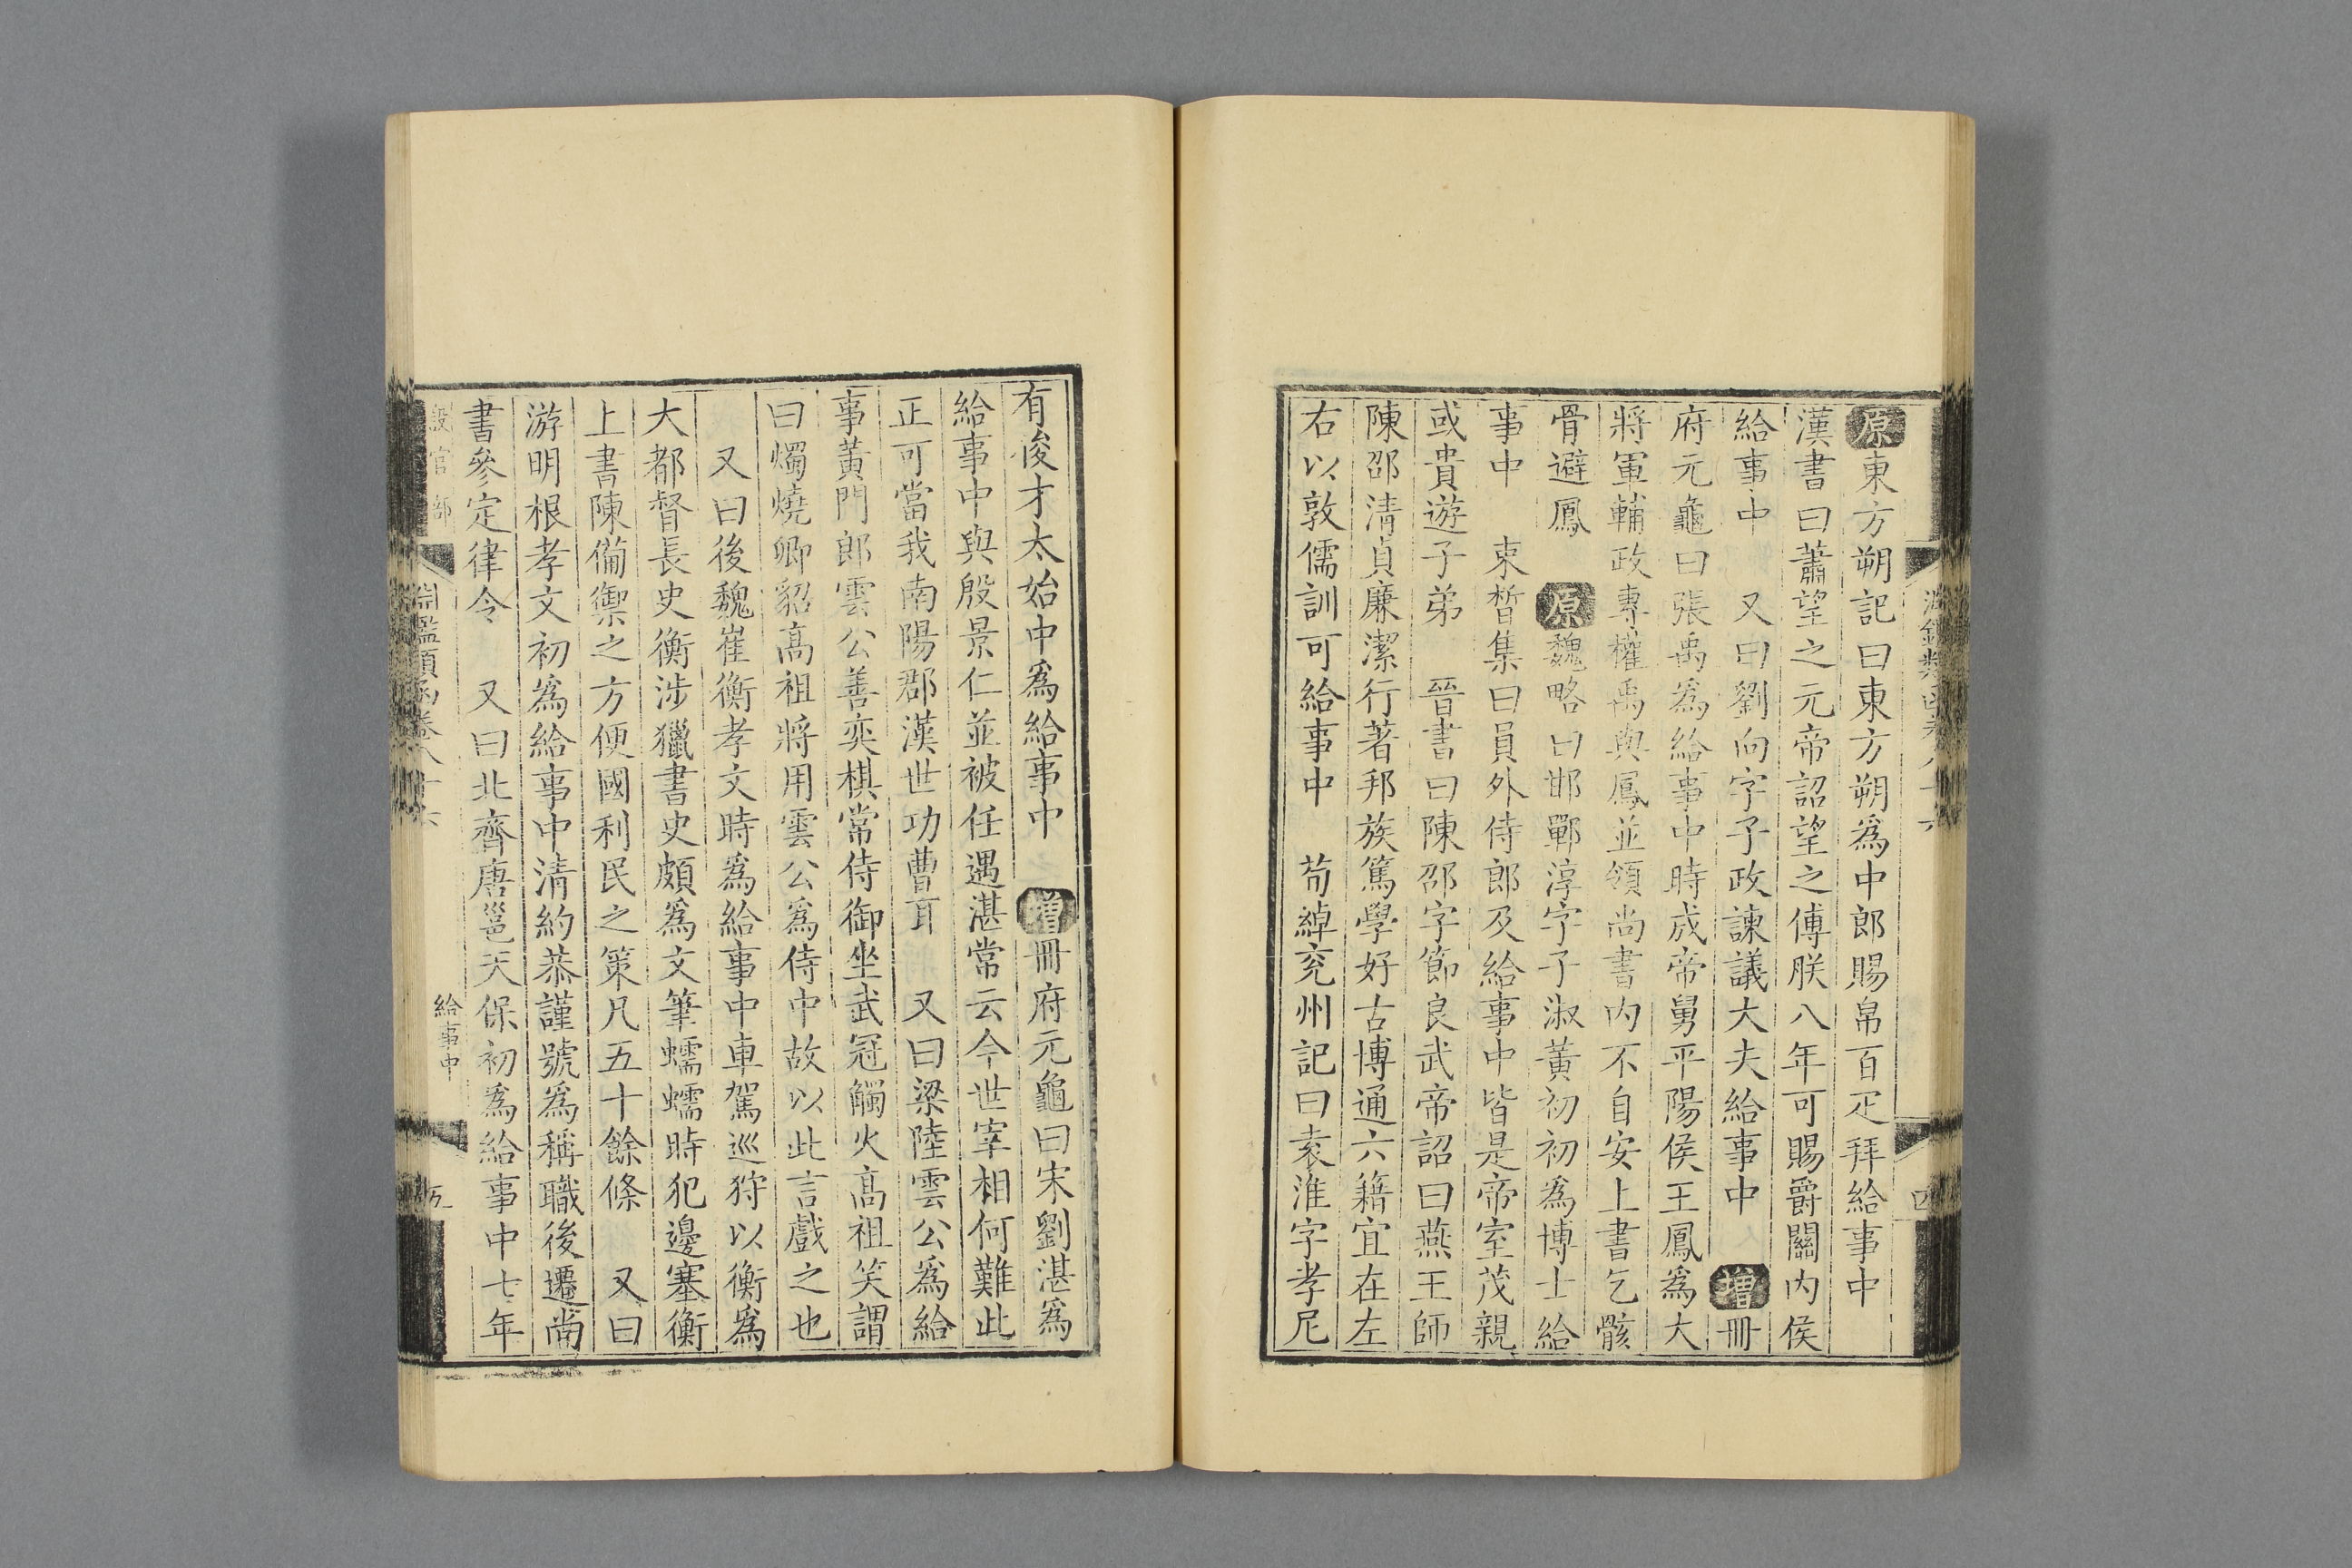 原東方朔記曰東方朔爲中郎賜帛百疋拜給事中
漢書曰蕭望之元帝詔望之傅朕八年可賜爵關内侯
給事中　又曰劉向字子政諫議大夫給事中　增冊
府元龜曰張禹爲給事中時成帝舅平陽侯王鳳爲大
將軍輔政專權禹與鳳並領尚書内不自安上書乞骸
骨避鳳　原魏略曰邯鄲淳字子淑黃初初爲博士給
事中　束晳集曰員外侍郎及給事中皆是帝室茂親
或貴遊子弟　晉書曰陳邵字節良武帝詔曰燕王師
陳邵清貞廉潔行著邦族篤學好古博通六籍宜在左
右以敦儒訓可給事中　荀綽兖州記曰袁淮字孝尼
四
有俊才太始中爲給事中　增冊府元龜曰宋劉湛爲
給事中與殷景仁並被任遇湛常云今世宰相何難此
正可當我南陽郡漢世功曹耳　又曰梁陸雲公爲給
事黃門郎雲公善奕棋常侍御坐武冠觸火高祖笑謂
曰燭燒卿貂高祖將用雲公爲侍中故以此言戲之也
又曰後魏崔衡孝文時爲給事中車駕巡狩以衡爲
大都督長史衡涉獵書史頗爲文筆蠕蠕時犯邊塞衡
上書陳備禦之方便國利民之策凡五十餘條　又曰
游明根孝文初爲給事中清約恭謹號爲稱職後遷尚
書參定律令　又曰北齊唐邕天保初爲給事中七年
設官部　淵鑑類函卷八十六　給事中　五